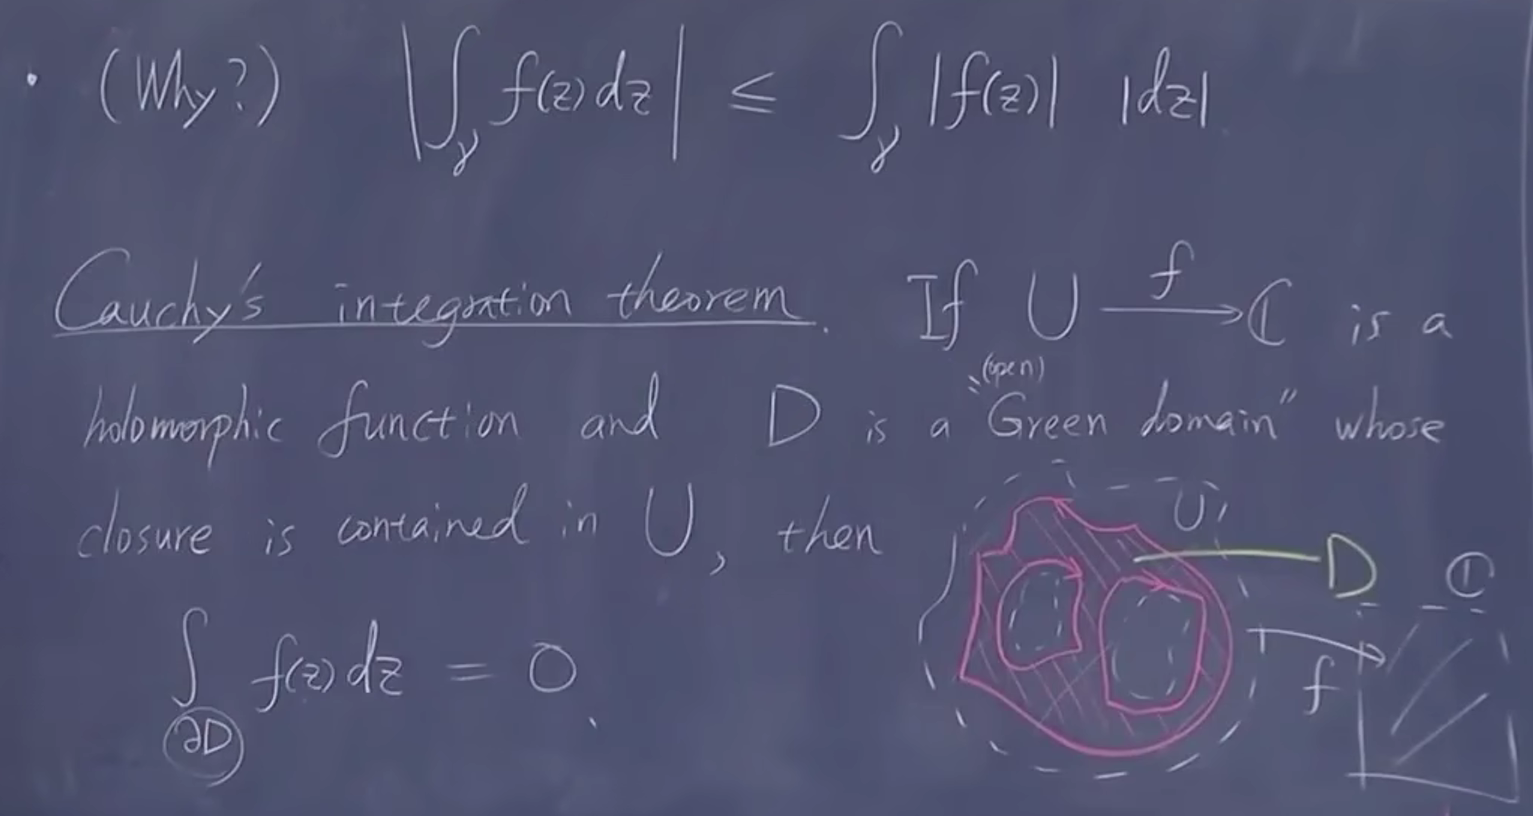 · (Why?) |∫_γ f(z) dz| ≤ ∫_γ |f(z)| |dz|.
Cauchy's integration theorem. If U —f→ ℂ is a
(open)
holomorphic function and D is a "Green domain" whose
closure is contained in U, then
U
D ℂ
∫_∂D f(z) dz = 0.
f